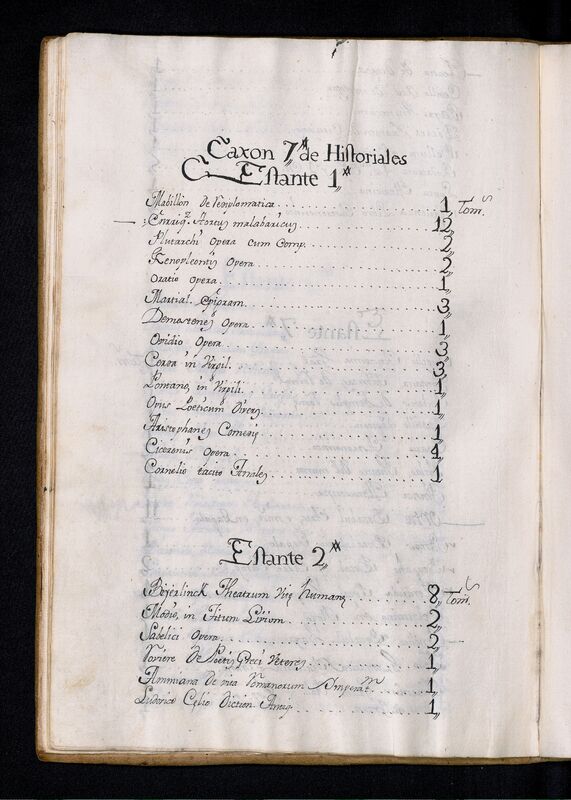 Caxon 7.ª de Historiales
Estante 1.ª
Mabillon De Remplomatica 1 Tom.s
Enrriq.z Hortus malabaricus 12
Plutarchi Opera cum Comp. 2
Xenophontis Opera 2
Oratio Opera 1
Martial. Epigram. 3
Demostenes Opera 1
Ovidio Opera 3
Cerda in Virgil. 3
Pomano, in Virgili 1
Opus Poeticum Diverss 1
Aristophanes Comedis 1
Ciceronis Opera 4
Cornelio tacito Anales 1
Estante 2.ª
Beyerlinck Theatrum Vitę humanę 8 Tom.s
Modio, in Titum Livium 2
Sabelici Opera 2
De Poetis Gręci Veteres 1
Ammiana De vita Romanorum Imperat.m 1
Ludovico Cęlio Diction. Antiq. 1